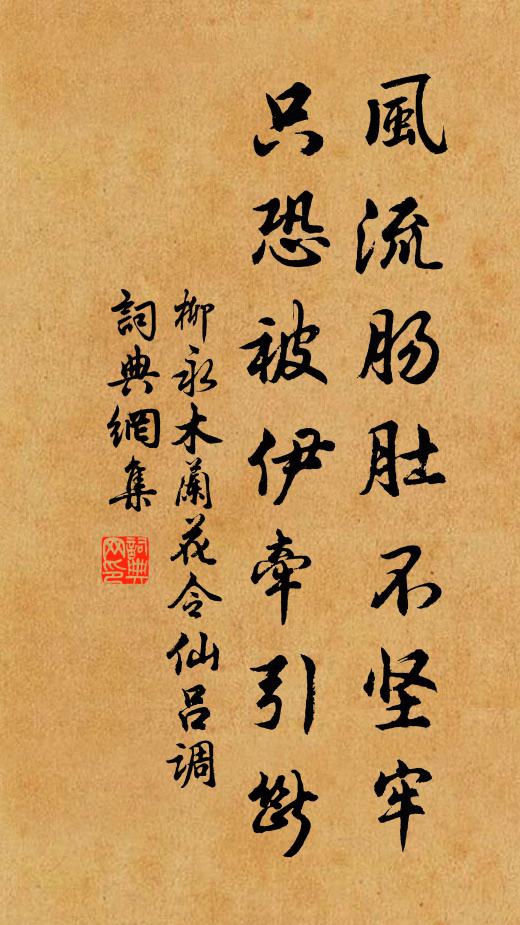 風流肠肚不坚牢
只恐被伊牵引斷
柳永木蘭花令仙呂調
詞典網集
詞典网印